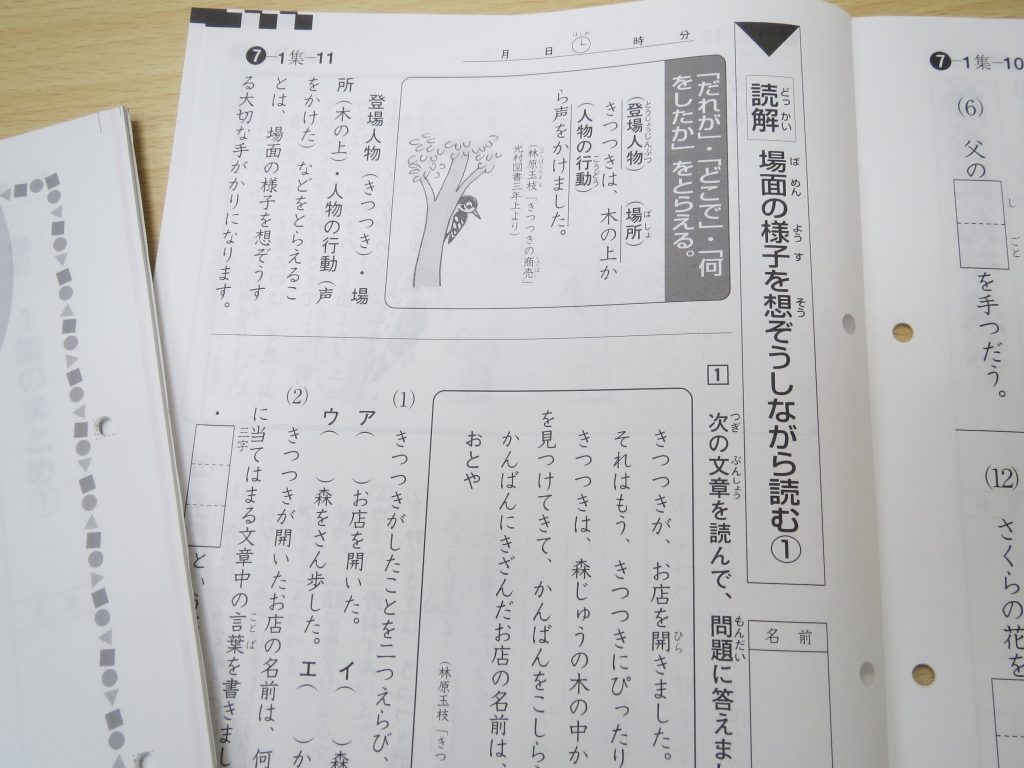 ❼−1集−11
月 日 時 分
はじめ
読解 場面の様子を想ぞうしながら読む①
どっかい ばめん ようす そう
名前
「だれが」・「どこで」・「何
をしたか」をとらえる。
(登場人物) (場所)
とうじょうじんぶつ ばしょ
きつつきは、木の上か
(人物の行動)
こうどう
ら声をかけました。
(林原玉枝「きつつきの商売」
光村図書三年上より)
登場人物(きつつき)・場
所(木の上)・人物の行動(声
をかけた)などをとらえるこ
とは、場面の様子を想ぞうす
る大切な手がかりになります。
1 次の文章を読んで、問題に答えま
つぎ ぶんしょう もんだい
きつつきが、お店を開きました。
ひら
それはもう、きつつきにぴったり
きつつきは、森じゅうの木の中か
を見つけてきて、かんばんをこしら
かんばんにきざんだお店の名前は、
おとや
(林原玉枝「きつ
(1) きつつきがしたことを二つえらび、
ア( )お店を開いた。 イ( )森
ウ( )森をさん歩した。 エ( )か
(2) きつつきが開いたお店の名前は、何
に当てはまる文章中の言葉を書きまし
ことば
・ 三字
❼−1集−10
(6) 父の を手つだう。
しごと
(12) さくらの花を